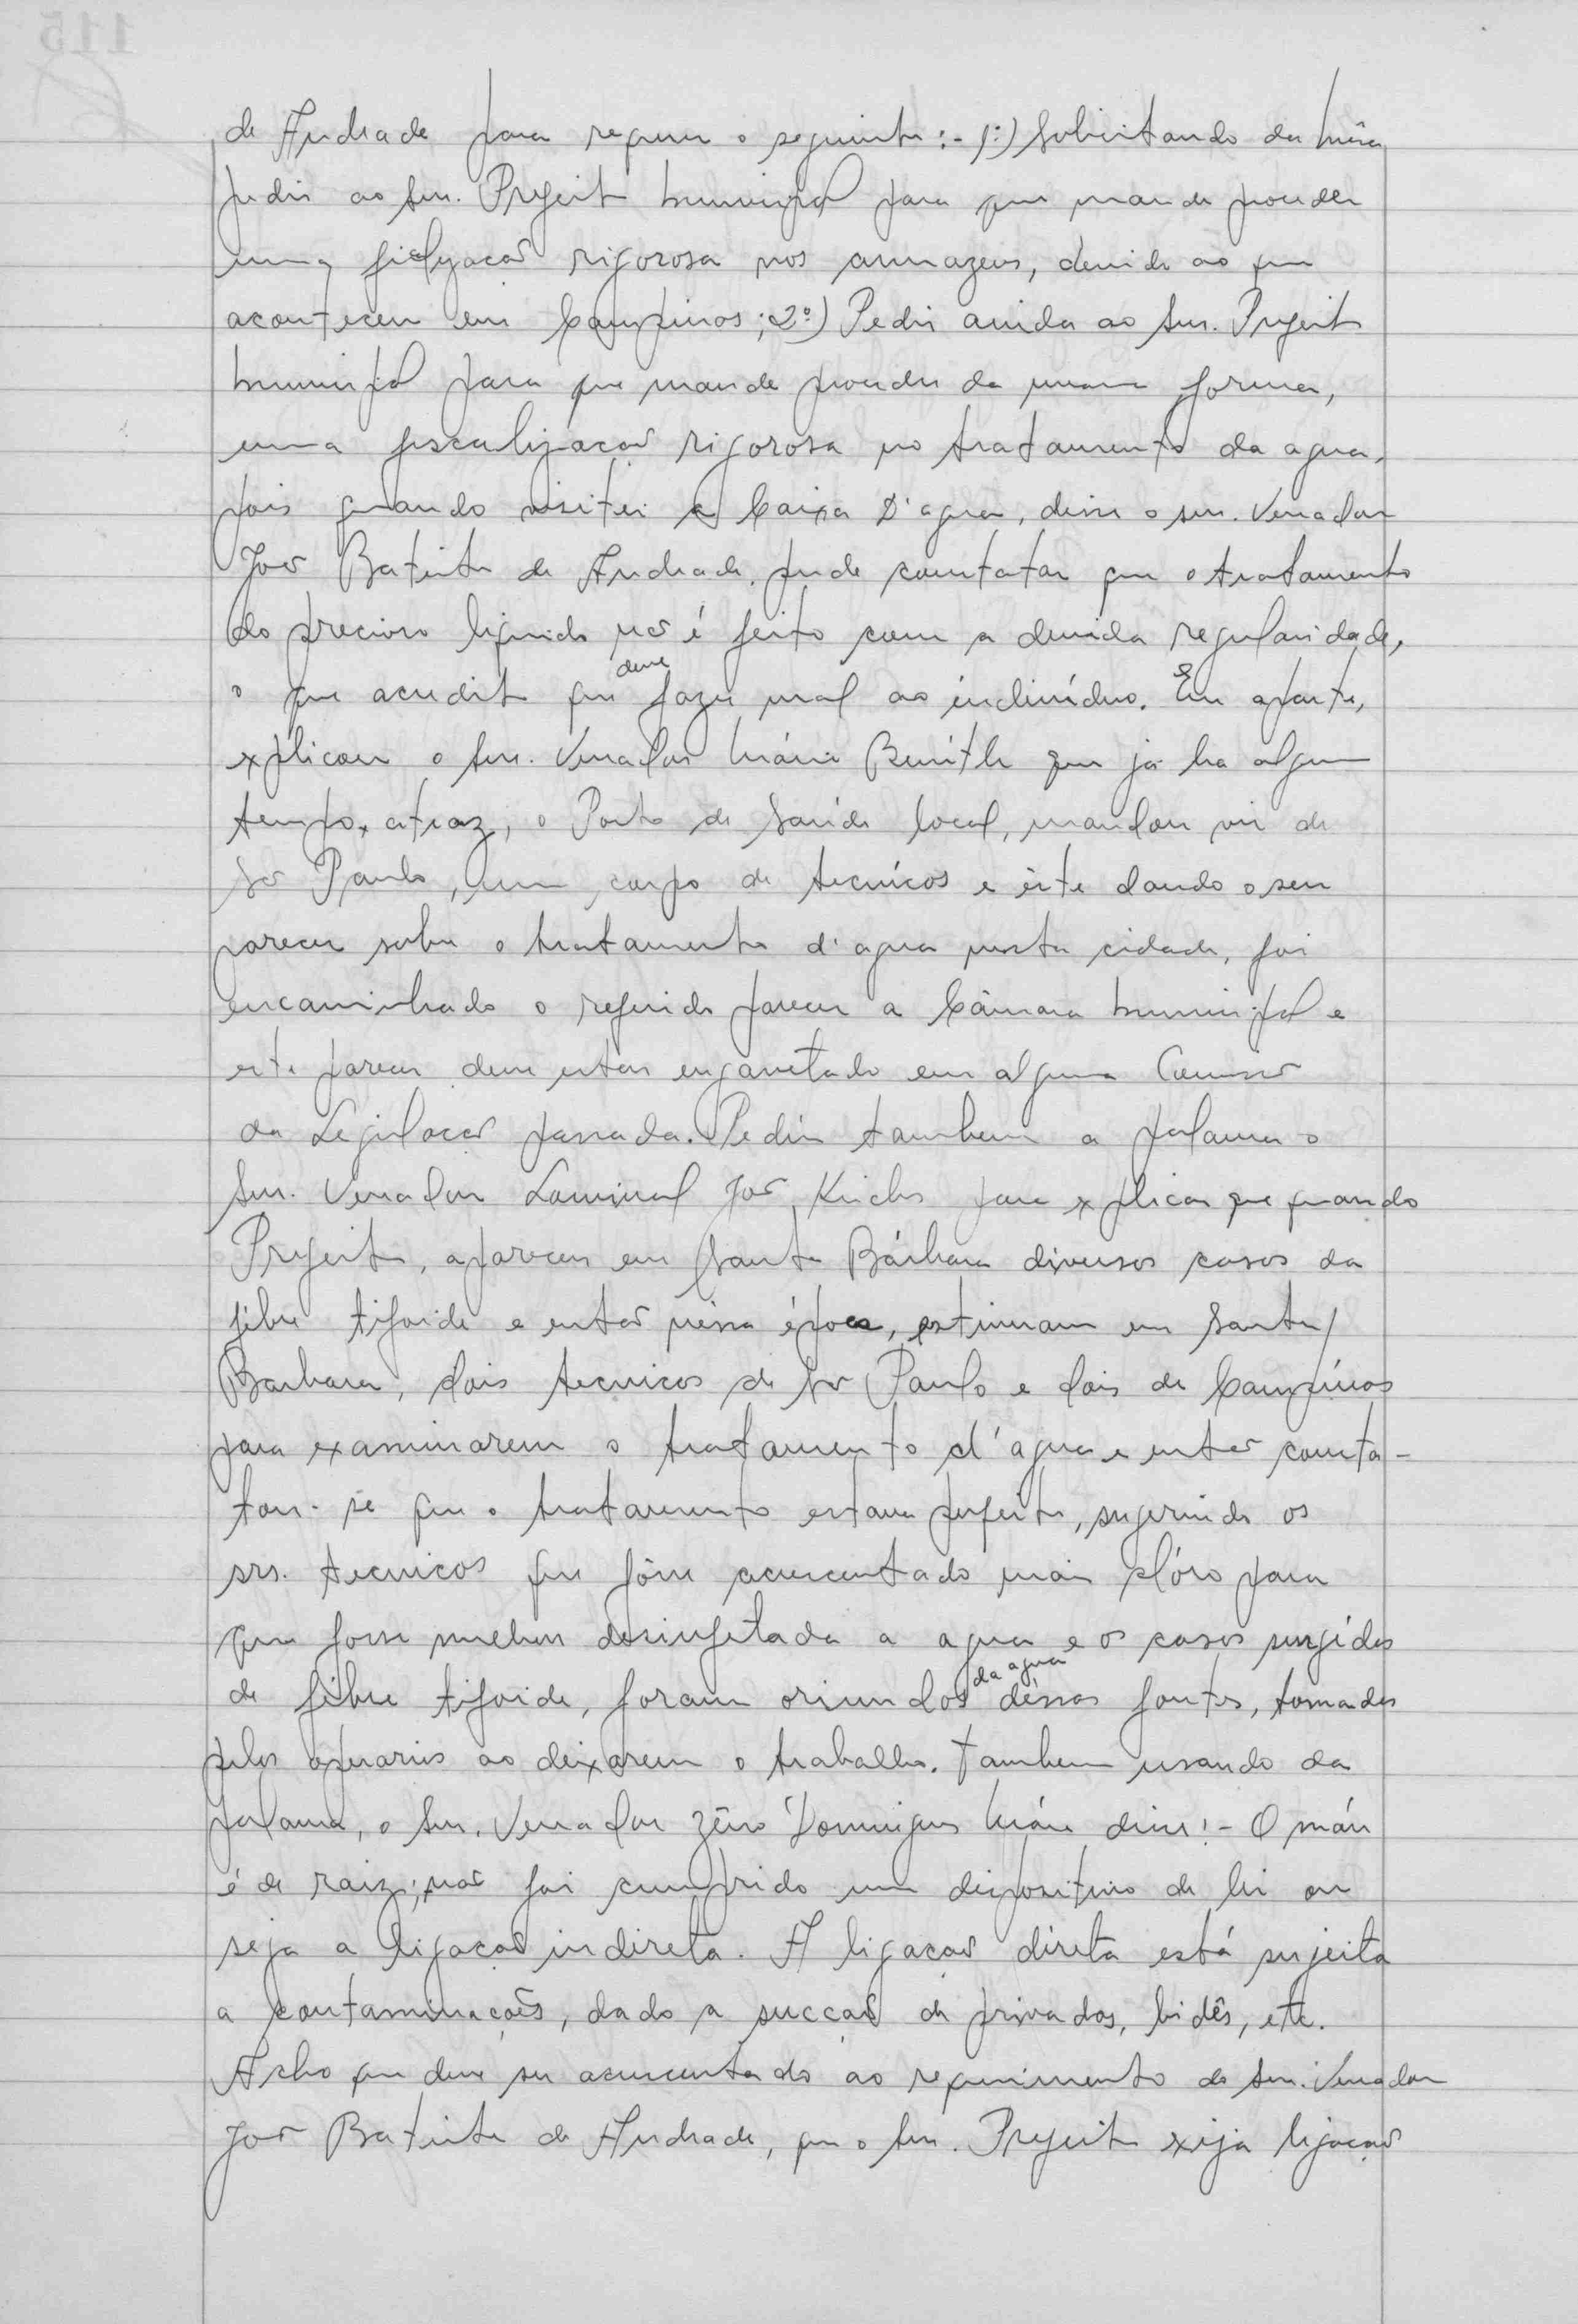 de Andrade para requerer o seguinte:- 1º) Solicitando da mêsa
pedir ao Snr. Prefeito Municipal para que mande proceder
uma rigorosa nos armazens, devido ao que
aconteceu em Campinas; 2º) Pedir ainda ao Snr. Prefeito
Municipal para que mande proceder da mesma forma,
uma fiscalização rigorosa no tratamento da agua,
pois quando visitei a Caixa D'agua, disse o snr. Vereador
João Batista de Andrade, pude constatar que o tratamento
do precioso liquido não é feito com a devida regularidade,
o que acredito que deve fazer mal ao indivíduo. Em aparte,
explicou o Snr. Vereador Mário que já ha algum
tempo atraz, o Posto de Saúde local, mandou vir de
São Paulo, um corpo de tecnícos e êste dando o seu
parecer sobre o tratamento d'agua nesta cidade, foi
encaminhado o referido parecer a Câmara Municipal e
este parecer deve estar engavetado em alguma Comissão
da passada. Pediu tambem a palavra o
Snr. Vereador José para explicar que quando
Prefeito, apareceu em Santa Bárbara diversos casos da
febre tifoide e então nessa época, estiveram em Santa
Barbara, dois tecnicos de São Paulo e dois de Campinas
para examinarem o tratamento d'agua e então consta-
tou-se que o tratamento estava perfeito, sugerindo os
srs. tecnicos que fôsse acrescentado mais clóro para
que fosse melhor desinfetada a agua e os casos surgidos
de febre tifoide, foram oriundos da agua dessas fontes, tomadas
pelos operarios ao deixarem o trabalho. Tambem usando da
palavra, o Snr. Vereador Zêno Domingues Maia disse:- O mál
é de raiz; não foi cumprido um dispositivo de lei ou
seja a ligação indireta. A ligação direta está sujeita
a contaminações, dado a sucção de privadas, bidês, etc.
Acho que deve ser acrescentado ao requerimento do Snr. Vereador
João Batista de Andrade, que o Snr. Prefeito exija ligação